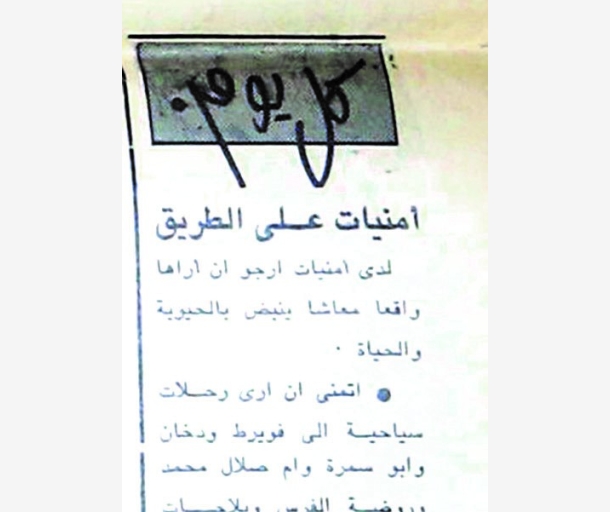 كل يوم
أمنيات على الطريق
لدى أمنيات ارجو ان أراها
واقعا معاشا ينبض بالحيوية
والحياة .
● اتمنى ان ارى رحلات
سياحية الى فويرط ودخان
وابو سمرة وام صلال محمد
وروضة الفرس